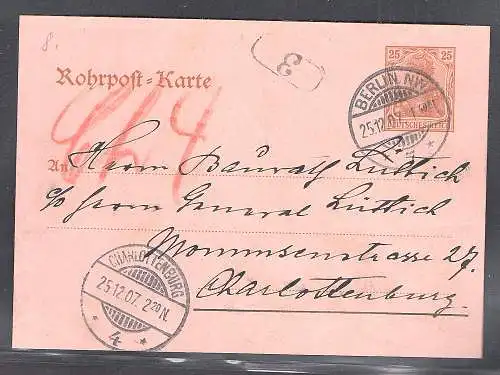 8.
25 25
Rohrpost-Karte
3
BERLIN NW
25.12.07.
DEUTSCHES REICH
7
Ch 4
An
Herrn Baurath Lüttich
c/o Herrn General Lüttich
Mommsenstrasse 27.
Charlottenburg.
CHARLOTTENBURG
25.12.07. 2 20 N.
* 4 *